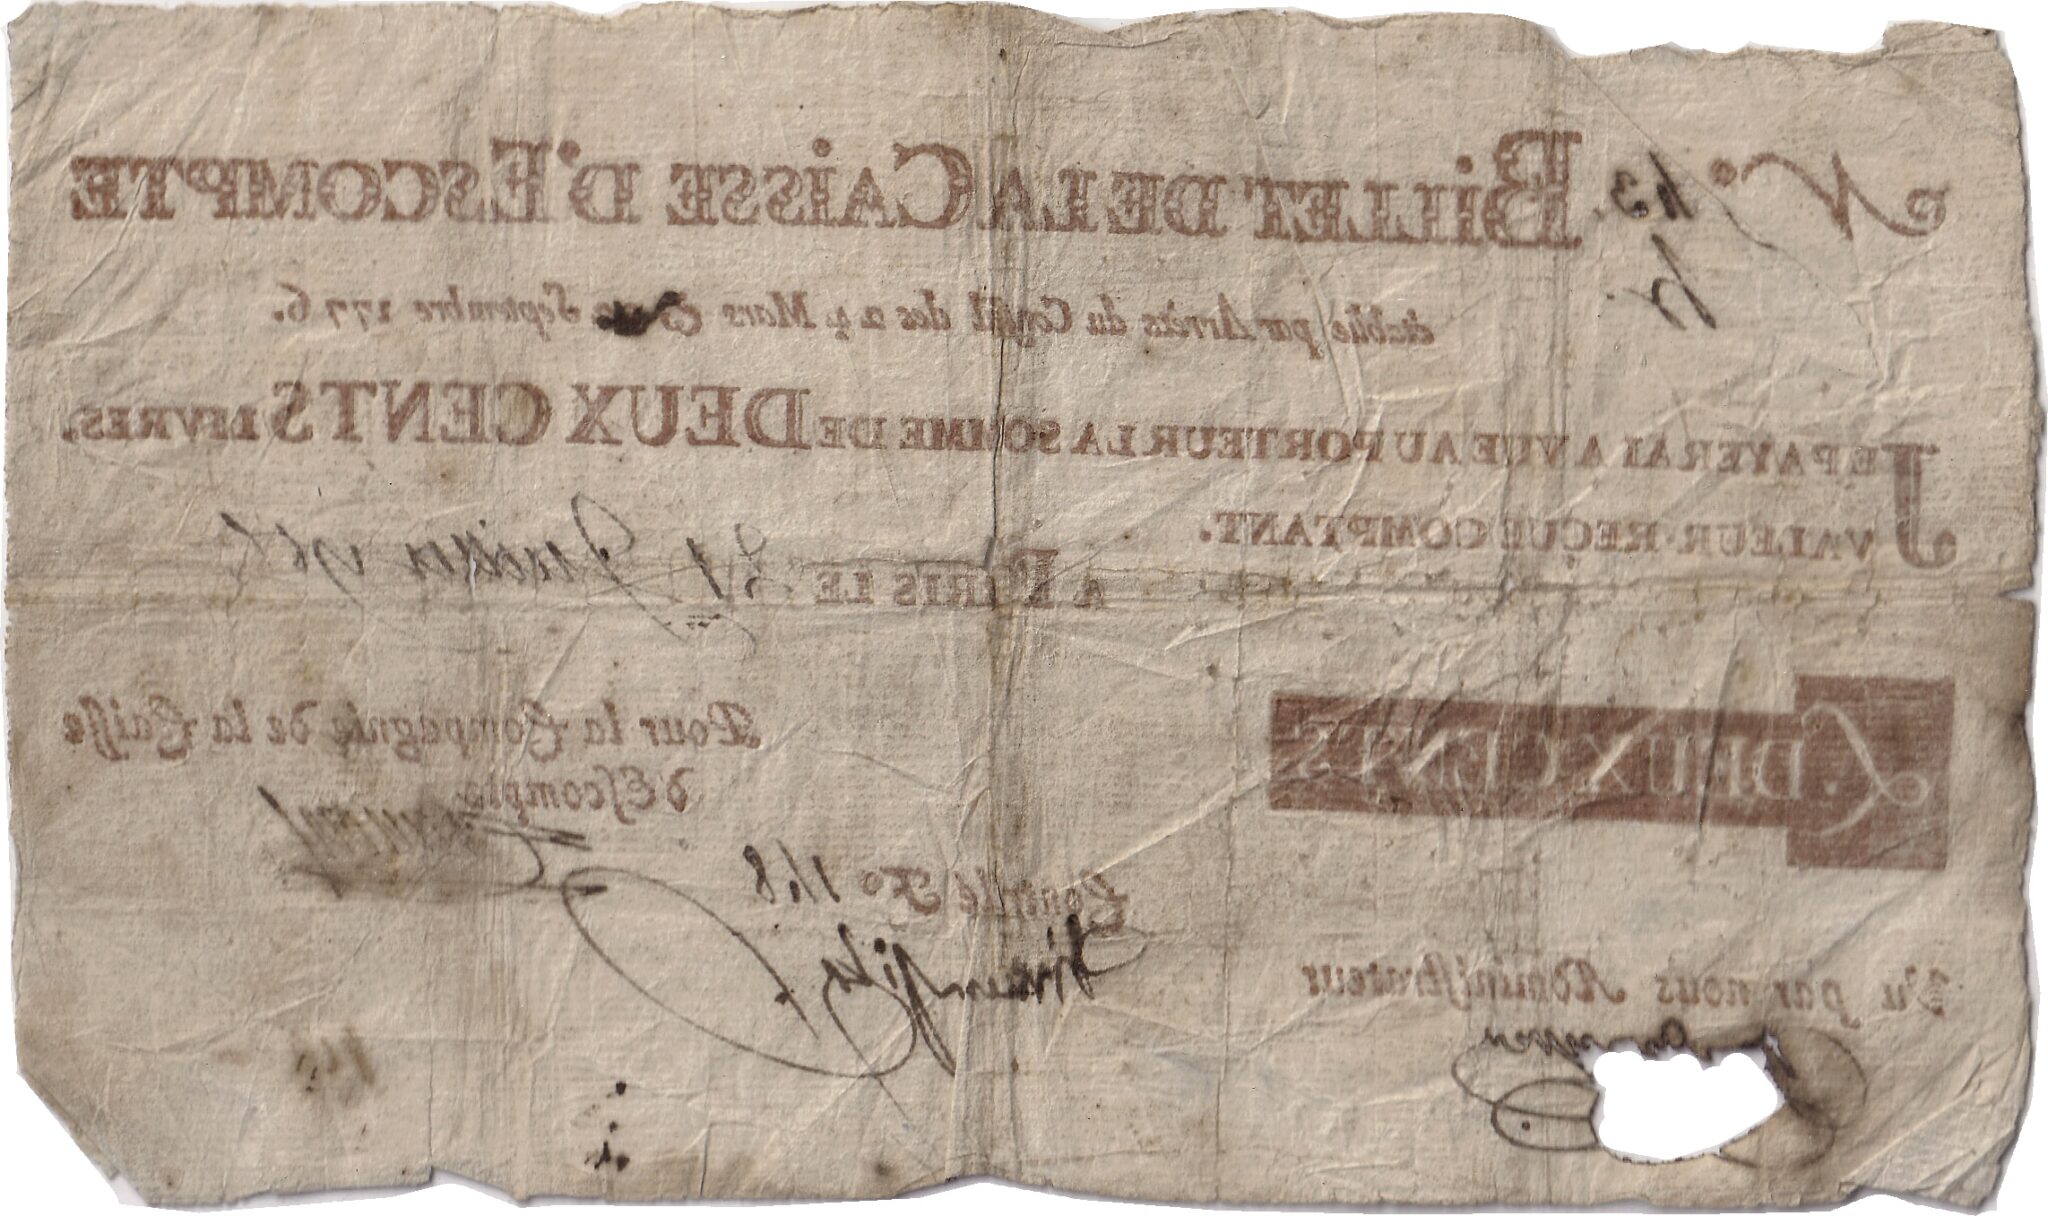 N.º 43. BILLET DE LA CAISSE D'ESCOMPTE
établie par Arrêts du Conseil des 24 Mars & Septembre 1776.
JE PAYERAI A VUE AU PORTEUR LA SOMME DE DEUX CENTS LIVRES,
VALEUR REÇUE COMPTANT.
A PARIS LE 31
L. DEUX CENTS
Pour la Compagnie de la Caisse
d'Escompte
Contrôlé Fº 148
Vu par nous Administrateur